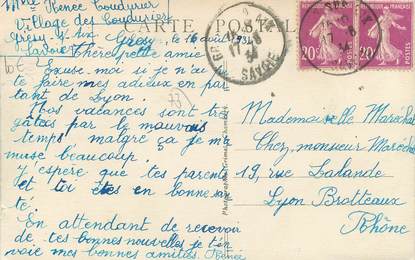 Mlle Renée Coudurier
Village des Coudurier
Grésy s/ Aix
Savoie
CARTE POSTALE
Grésy le 16 août 1934
Chère petite amie
Excuse moi si je n'ai
te faire mes adieux en par
tant de Lyon.
Nos vacances sont très
gâtées par le mauvais
temps malgré ça je m'a
muse beaucoup.
J'espère que tes parents
et toi êtes en bonne san
té.
En attendant de recevoir
de tes bonnes nouvelles je t'en
voie mes bonnes amitiés. Renée
17 - 8
34
SAVOIE
20c
20c
Mademoiselle Maréchal
Chez, monsieur Maréchal
19, rue Lalande
Lyon Brotteaux
Rhône